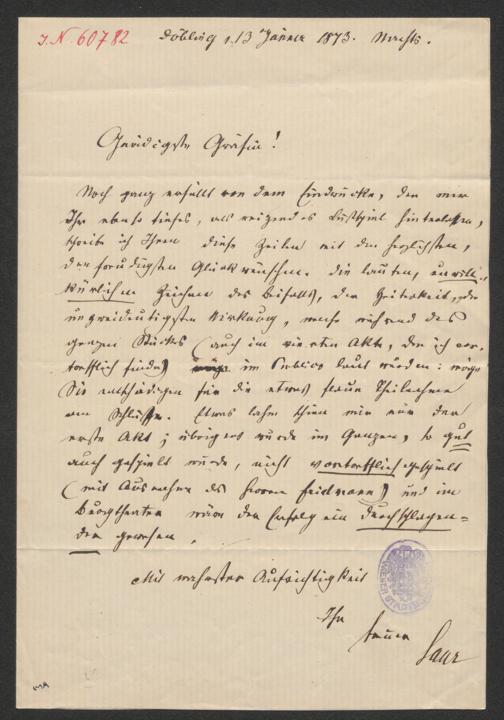 I.N. 60782
Döbling, 13 Jänner 1873. Nachts.
Gnädigste Gräfin!
Noch ganz erfüllt von dem Eindrucke, den mir
Ihr ebenso tiefes, als reizendes Lustspiel hinterlassen,
schreibe ich Ihnen diese Zeilen mit den herzlichsten,
den freudigsten Glückwünschen. Die lauten, unwill-
kürlichen Zeichen des Beifalls, der Heiterkeit, der
unzweideutigsten Wirkung, welche während des
ganzen Stückes (auch im vierten Akte, den ich vor-
trefflich finde) im Publico laut wurden: möge
Sie entschädigen für die etwas flaue Theilnahme
am Schlusse. Etwas lahm schien mir nur der
erste Akt; übrigens wurde im Ganzen, so gut
auch gespielt wurde, nicht vortrefflich gespielt
(mit Ausnahme des Herrn Friedmann) und im
Burgtheater wäre der Erfolg ein durchschlagen-
der gewesen.
Mit wahrster Aufrichtigkeit
Ihr
treuer
Saar